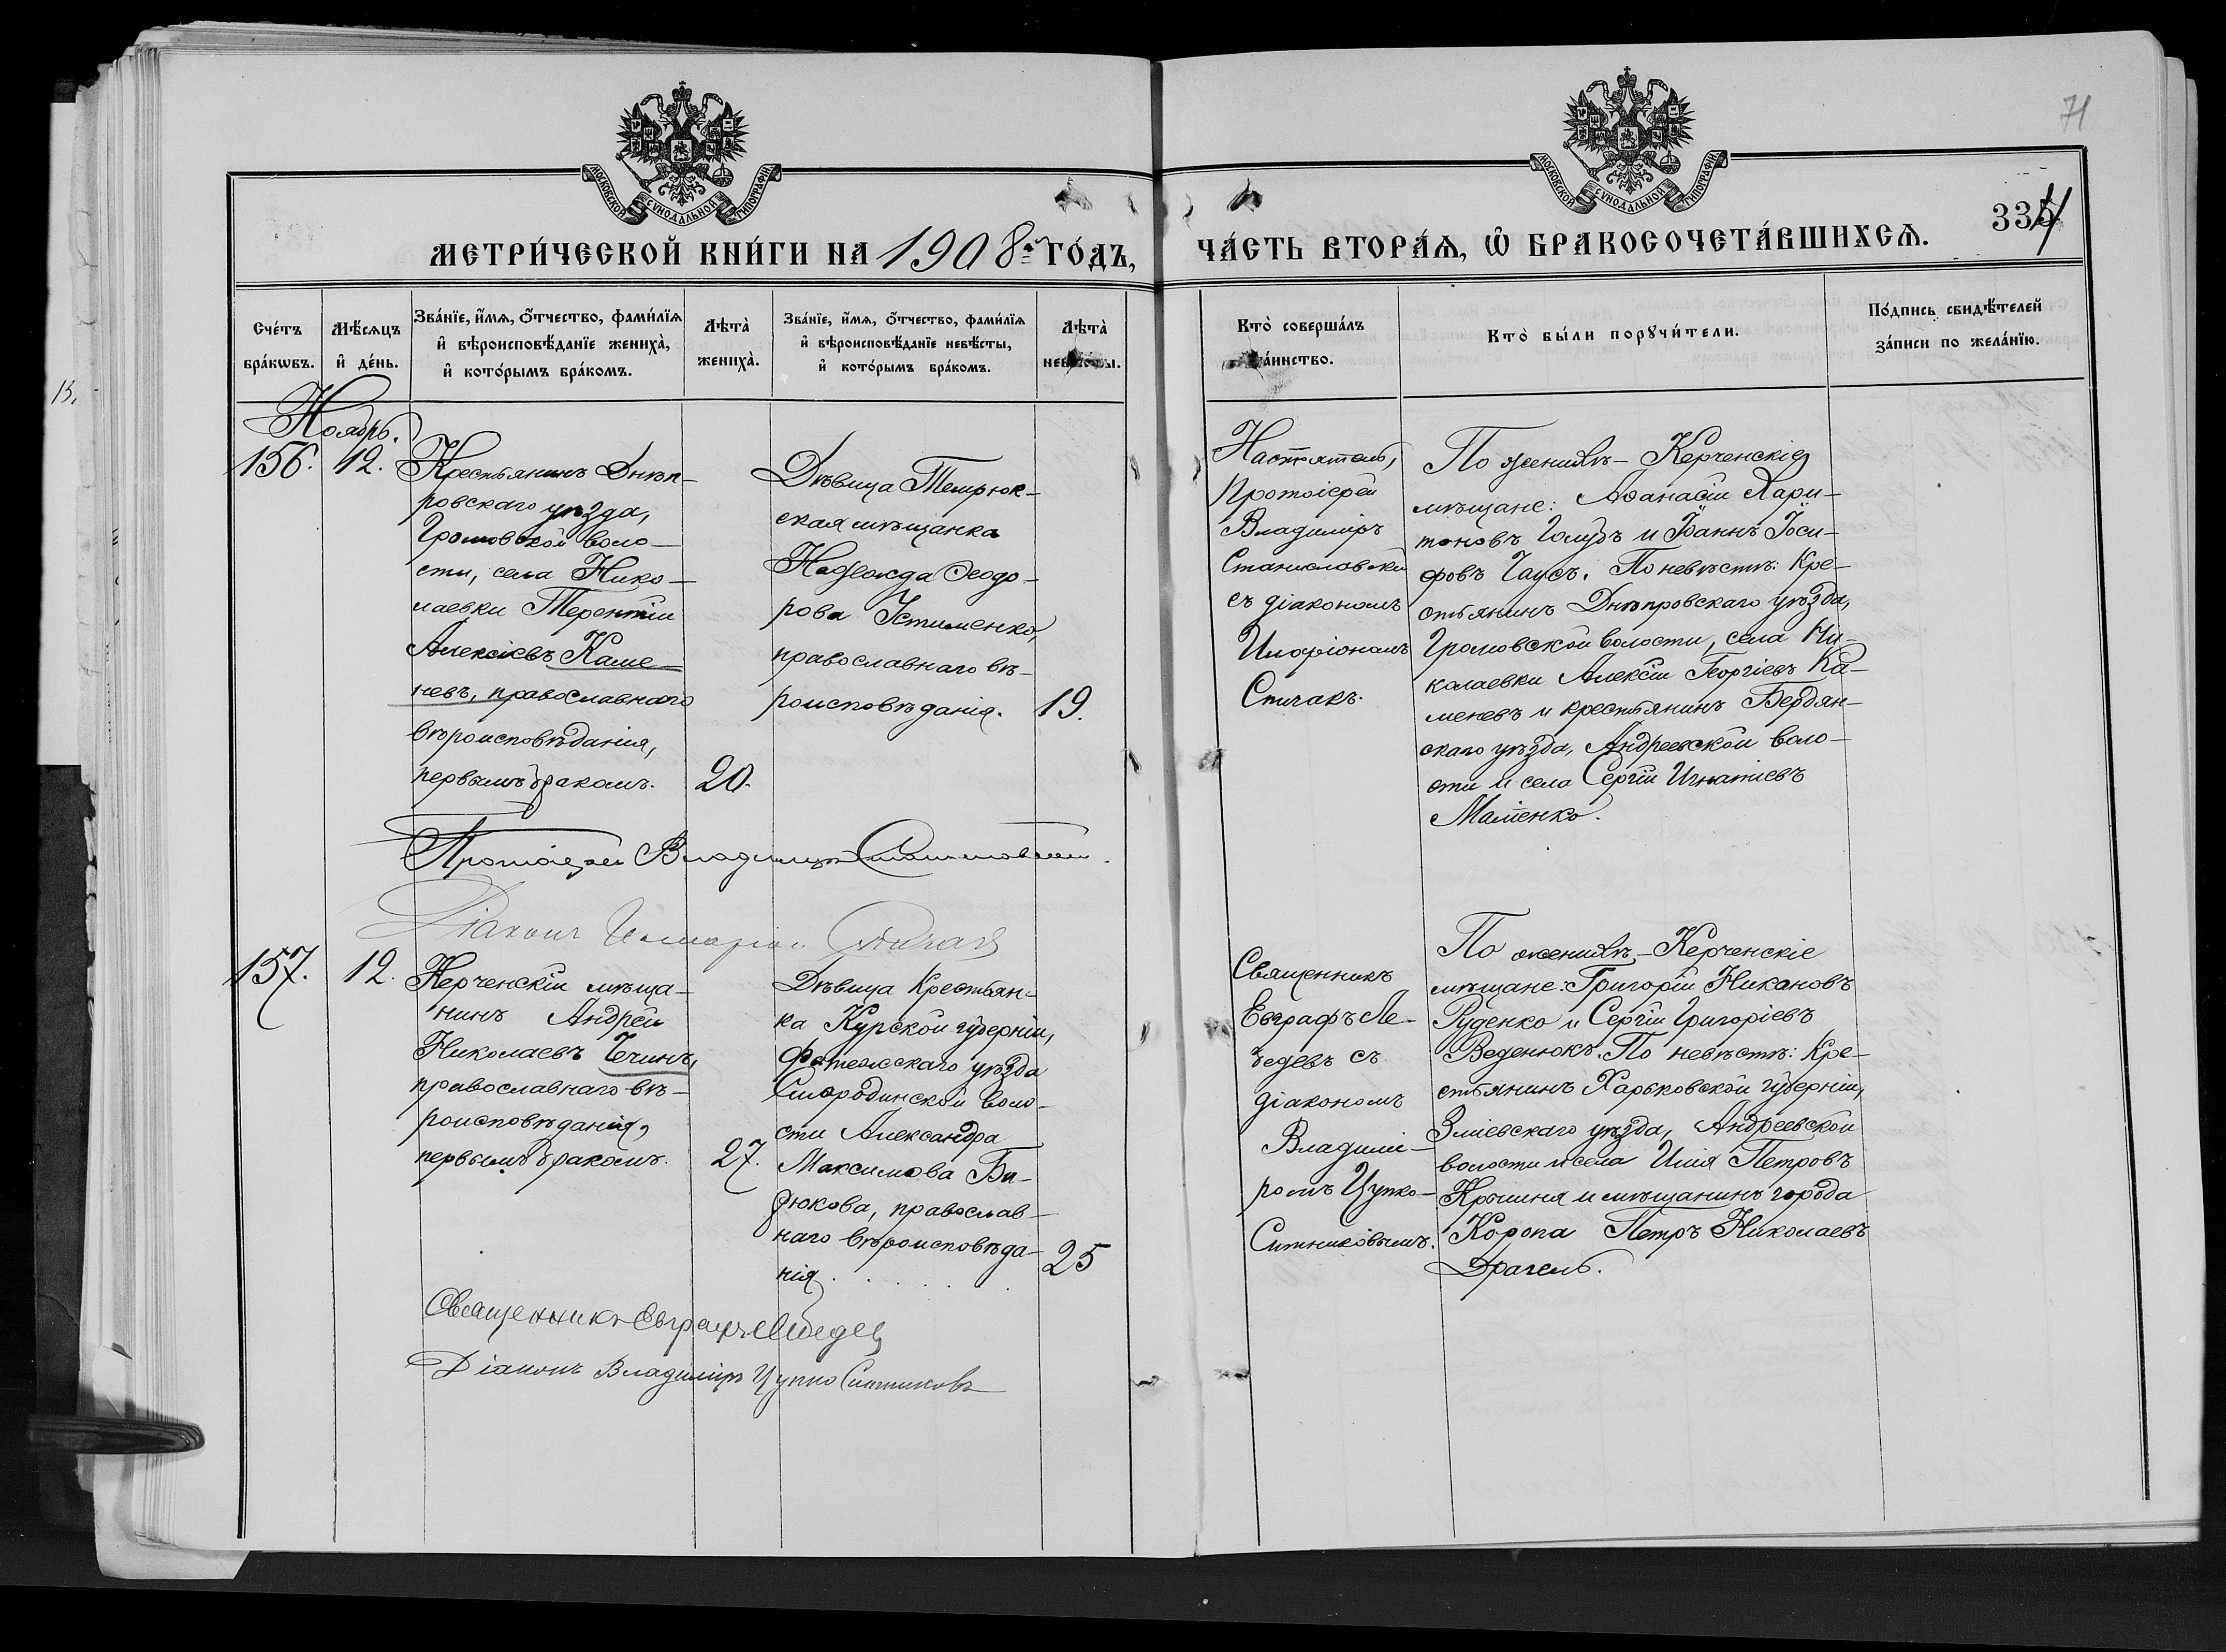 71
МОСКОВСКОЙ СѴНОДАЛЬНОЙ ТИПОГРАФІИ
МОСКОВСКОЙ СѴНОДАЛЬНОЙ ТИПОГРАФІИ
МЕТРИ́ЧЕСКОЙ КНИ́ГИ НА 1908й ГО́ДЪ,
ЧА́СТЬ ВТОРА́Ѧ, Ѡ҆ БРАКОСОЧЕТА́ВШИХСѦ.
334
Сче́тъ бра́кѡвъ.
Мѣ́сѧцъ и҆ де́нь.
Зва́нїе, и҆́мѧ, ѻ҆́тчество, фами́лїѧ
и҆ вѣроисповѣ́данїе жениха̀,
и҆ кото́рымъ бра́комъ.
Лѣта̀ жениха̀.
Зва́нїе, и҆́мѧ, ѻ҆́тчество, фами́лїѧ
и҆ вѣроисповѣ́данїе невѣ́сты,
и҆ кото́рымъ бра́комъ.
Лѣта̀
Кто̀ соверша́лъ
та́инство.
Кто̀ бы́ли порꙋчи́тели.
По́дпись свидѣ́телей
за́писи по жела́нїю.
13.
Ноябрь.
156.
12.
Крестьянинъ Днѣп-
ровскаго уѣзда,
Громовской воло-
сти, села Нико-
лаевки Терентій
Алексіевъ Каме-
невъ, православнаго
вѣроисповѣданія,
первымъ бракомъ.
20.
Дѣвица Темрюк-
ская мѣщанка
Надежда Ѳеодо-
рова Устименко,
православнаго вѣ-
роисповѣданія.
19.
Настоятель,
Протоіерей
Владиміръ
Станиславскій
съ діакономъ
Иларіономъ
Стичакъ.
По женихѣ - Керченскіе
мѣщане: Аѳанасій Хари-
тоновъ Голубъ и Іоаннъ Іоси-
фовъ Чаусъ. По невѣстѣ: Кре-
стьянинъ Днѣпровскаго уѣзда,
Громовской волости, села Ни-
колаевки Алексій Георгіевъ Ка-
меневъ и крестьянинъ Бердян-
скаго уѣзда, Андреевской воло-
сти и села Сергій Игнатіевъ
Матіенко.
Протоіерей Владиміръ Станиславскій.
Діаконъ Илларіон Стичакъ
157.
12.
Керченскій мѣща-
нинъ Андрей
Николаевъ Чечинъ,
православнаго вѣ-
роисповѣданія,
первымъ бракомъ.
27.
Дѣвица Крестьян-
ка Курской губерніи,
Фатежскаго уѣзда
Смородинской воло-
сти Александра
Максимова Би-
рюкова, православ-
наго вѣроисповѣда-
нія.
25
Священникъ
Евграфъ Ле-
бедевъ съ
діакономъ
Владимі-
ромъ Цупко-
Ситниковымъ.
По женихѣ - Керченскіе
мѣщане: Григорій Никоновъ
Руденко и Сергій Григоріевъ
Веденюкъ. По невѣстѣ: Кре-
стьянинъ Харьковской губерніи,
Зміевскаго уѣзда, Андреевской
волости и села Илія Петровъ
и мѣщанинъ города
Коропа Петръ Николаевъ
Драгель.
Священникъ Евграфъ Лебедев
Діаконъ Владиміръ Цупко Ситниковъ